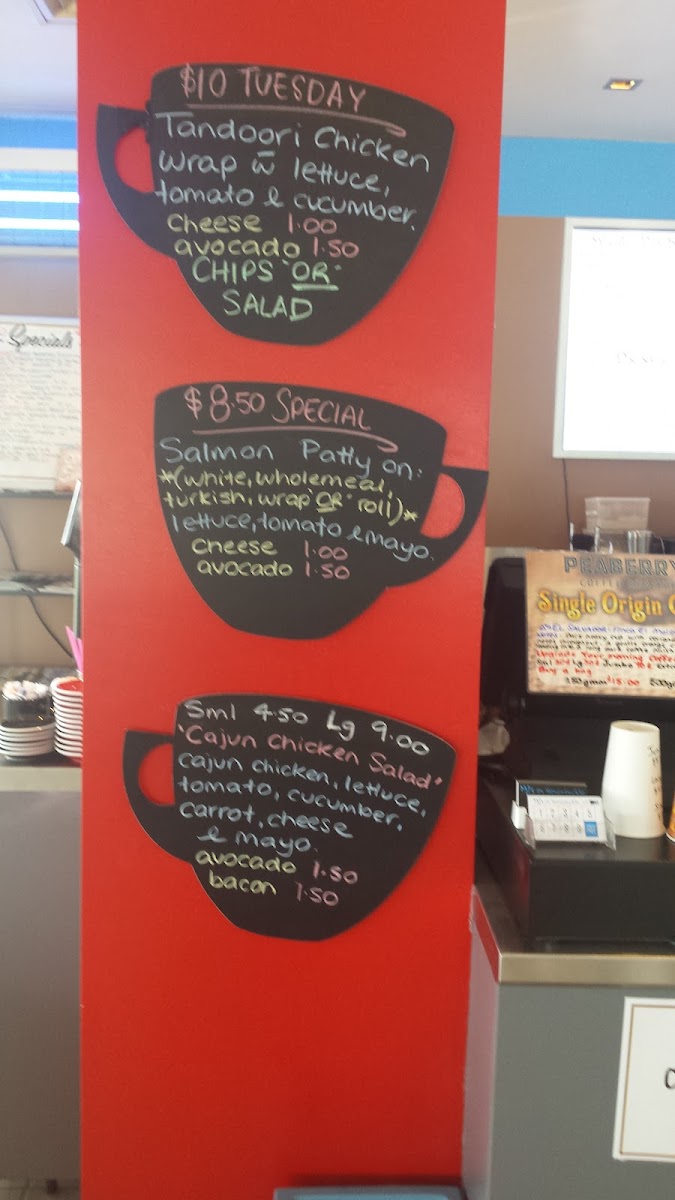 $10 TUESDAY
Tandoori Chicken
Wrap w̄ lettuce,
tomato & cucumber.
cheese 1.00
avocado 1.50
CHIPS "OR"
SALAD
Specials
$8.50 SPECIAL
Salmon Patty on:
*(white, wholemeal,
turkish, wrap "OR" roll)*
lettuce, tomato & mayo.
cheese 1.00
avocado 1.50
Sml 4.50 Lg 9.00
"Cajun Chicken Salad"
cajun chicken, lettuce,
tomato, cucumber,
carrot, cheese
& mayo.
avocado 1.50
bacon 1.50
PEABERRY
COFFEE
Single Origin
Upgrade Your morning coffee
Buy a bag
250gm $15.00 500g